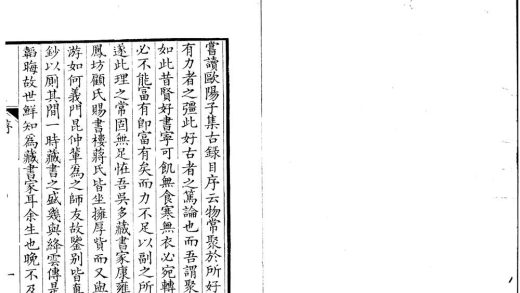 嘗讀歐陽子集古錄目序云物常聚於所好
有力者之彊此好古者之篤論也而吾謂聚
如此昔賢好書寧可飢無食寒無衣必宛轉
必不能富有卽富有矣而力不足以副之所
遂此理之常固無足怪吾吳多藏書家康雍
鳳坊顧氏賜書樓蔣氏皆坐擁厚貲而又與
游如何義門昆仲輩爲之師友故鑒別皆真
鈔以厠其間一時藏書之盛幾與絳雲傳是
韜晦故世鮮知爲藏書家耳余生也晚不及
序
一